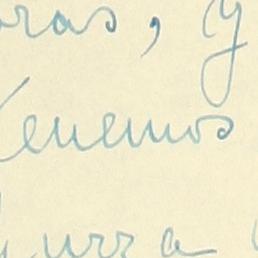 oras, y
tenemos
urra